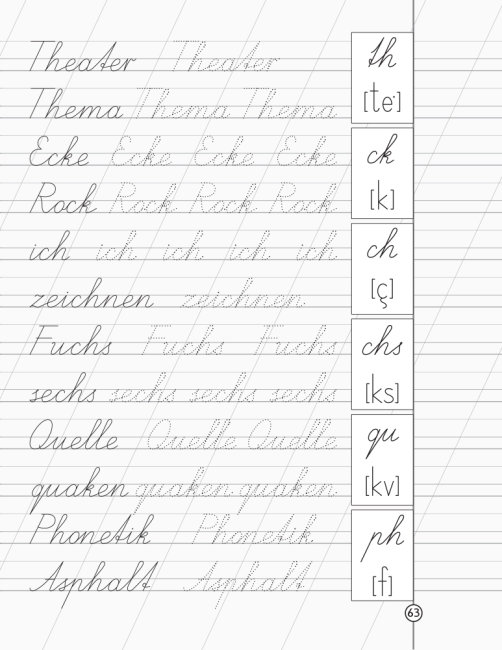 Theater Theater
Thema Thema Thema
Ecke Ecke Ecke Ecke
Rock Rock Rock Rock
ich ich ich ich ich
zeichnen zeichnen
Fuchs Fuchs Fuchs
sechs sechs sechs sechs
Quelle Quelle Quelle
quaken quaken quaken
Phonetik Phonetik
Asphalt Asphalt
th
[te']
ck
[k]
ch
[ç]
chs
[ks]
qu
[kv]
ph
[f]
63